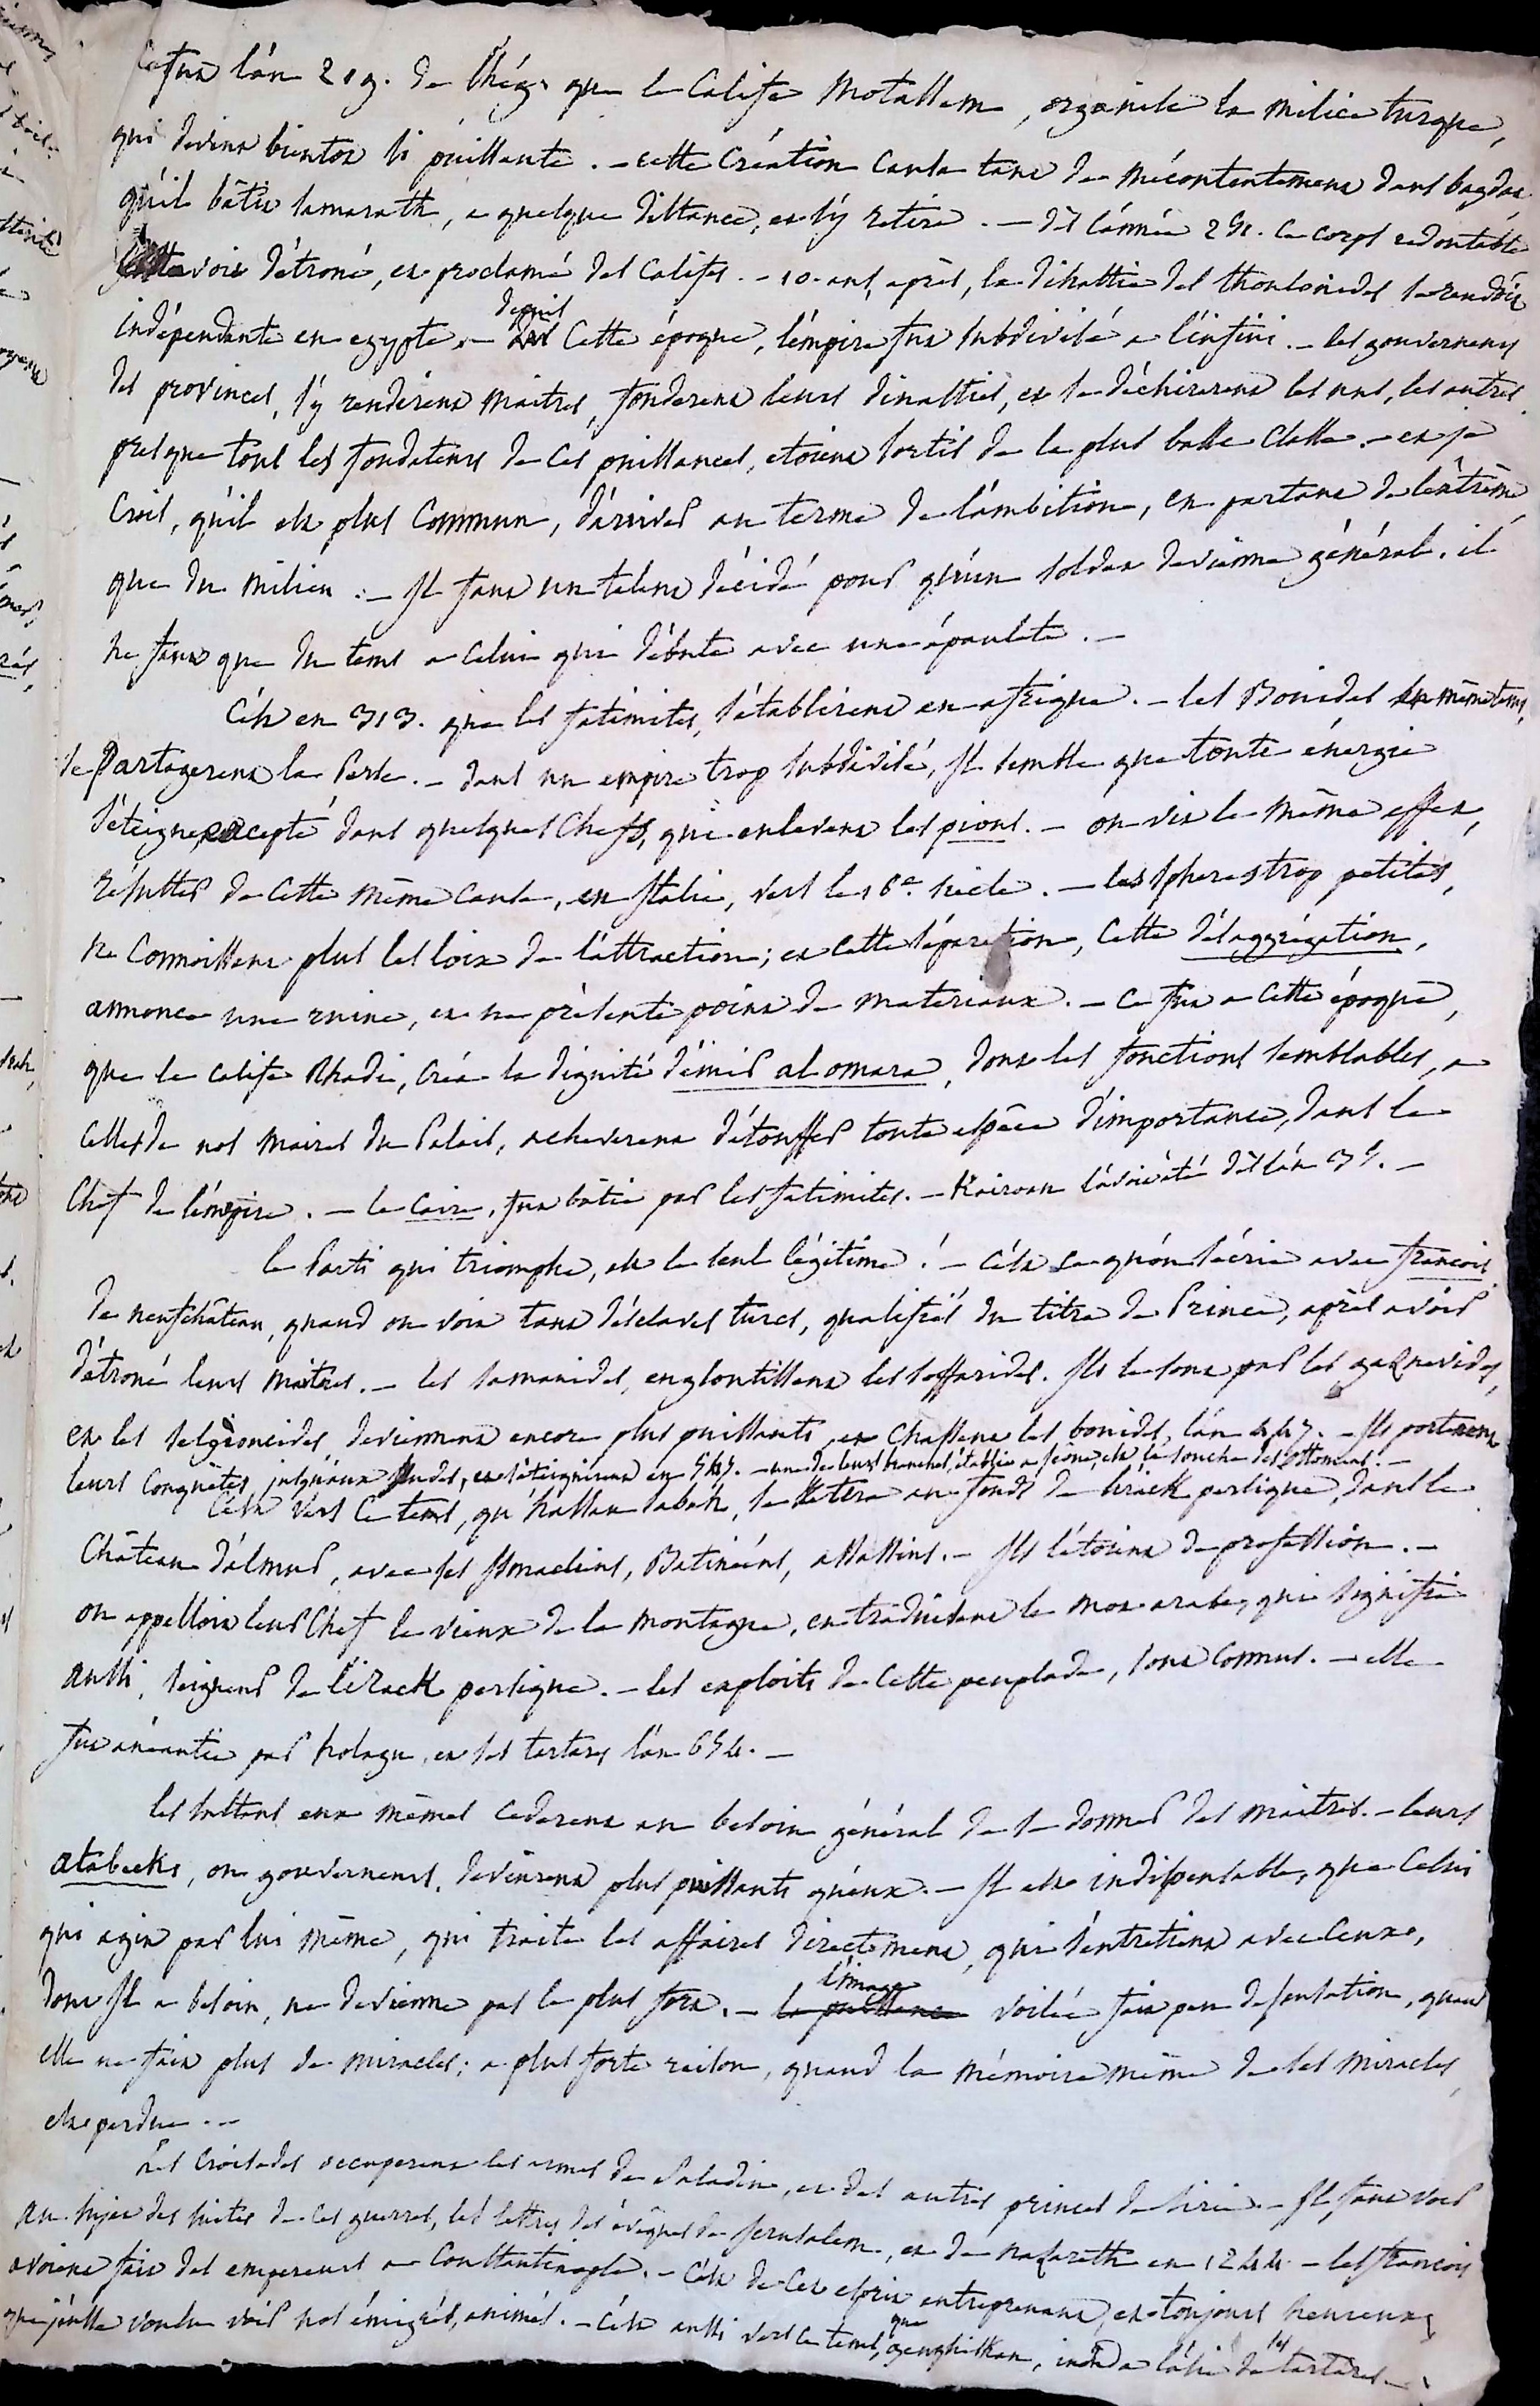 Ce fut l'an 219. de l'hég. que le Calife Motassem, organise la milice turque,
qui devint bientot si puissante. – cette Création causa tant de mécontentement dans bagdat
qu'il bâtit samarath, a quelque distance, et s'y retira. – dès l'année 251. ce corps redoutable
avoit détroné, et proclamé des Califes. – 10. ans, après, la dinastie des thoulonides se rendoit
indépendante en egypte. – depuis Cette époque, l'empire fut subdivisé a l'infini. – les gouverneurs
des provinces, s'y rendirent maitres, fonderent leurs dinasties, et se déchirerent les uns, les autres.
presque tous les fondateurs de ces puissances, etoient sortis de la plus basse classe. – et je
Crois, qu'il est plus Commun, d'arriver au terme de l'ambition, en partant de l'extrême
que du milieu. – Il faut un talent décidé pour qu'un soldat devienne général. il
ne faut que du tems a celui qui débute avec une épaulete. –
C'est en 313. que les fatimites, s'établirent en afrique. – les Bouides en même tems,
se Partagerent la Perse. – dans un empire trop subdivisé, Il semble que toute énergie
s'éteigne, excepté dans quelques Chefs, qui enlevent les pions. – on vit le même effet,
résulter de cette même cause, en Italie, vers le 16e siècle. – les spheres trop petites,
ne Connoissent plus les loix de l'attraction; et cette séparation, cette désaggrégation,
annonce une ruine, et ne présente point de materiaux. – ce fut a cette époque,
que le calife Rhadi, créa la dignité d'émir al omara, dont les fonctions semblables, a
celles de nos maires du Palais, acheverent d'étouffer toute espèce d'importance, dans le
Chef de l'empire. – le Caire, fut bâtie par les fatimites. – Kairoan l'avoit été dès l'an 35. –
le Parti qui triomphe, est le seul légitime! – c'est ce qu'on s'écrie avec françois
de neufchâteau, quand on voit tant d'esclaves turcs, qualifiés du titre de Prince, après avoir
détroné leurs maitres. – les samanides, engloutissent les soffarides. Ils le sont par les gaznevides,
et les selgioucides, deviennent encore plus puissants, et Chassent les bouides, l'an 447. – Ils porterent
leurs Conquêtes, jusqu'aux Indes, et s'éteignirent en 545. – une de leurs branches, établie a Icône, est la souche des Ottomans. –
C'est vers Ce tems, qu'hassan sabah, se retira au fonds de l'irack persique, dans le
Château d'almut, avec ses Ismaeliens, Batinéens, assassins. – Ils l'étoient de profession. –
on appelloit leur Chef le vieux de la montagne, en traduisant le mot arabe, qui signifie
aussi, seigneur de l'irack persique. – les exploits de cette peuplade, sont connus. – elle
fut anéantie par holagu, et ses tartares l'an 654. –
les sultans eux mêmes cederent au besoin général de se donner des maitres. – leurs
atabecks, ou gouverneurs, devinrent plus puissants qu'eux. – Il est indispensable, que celui
qui agit par lui même, qui traite les affaires directement, qui s'entretient avec ceux,
dont Il a besoin, ne devienne pas le plus fort. – l'image voilée fait peu de sensation, quand
elle ne fait plus de miracles; a plus forte raison, quand la mémoire même de ses miracles,
est perdue. –
Les Croisades occuperent les armes de Saladin, et des autres princes de sirie. – Il faut voir
au sujet des suites de ces guerres, les lettres des évêques de Jerusalem, et de nazareth en 1244 – les françois
avoient fait des empereurs a Constantinople. – C'est de cet esprit entreprenant, et toujours heureux,
que j'eusse voulu voir nos émigrés, animés. – C'est aussi vers ce tems, que genghiskan, inonda l'asie de ses tartares. –